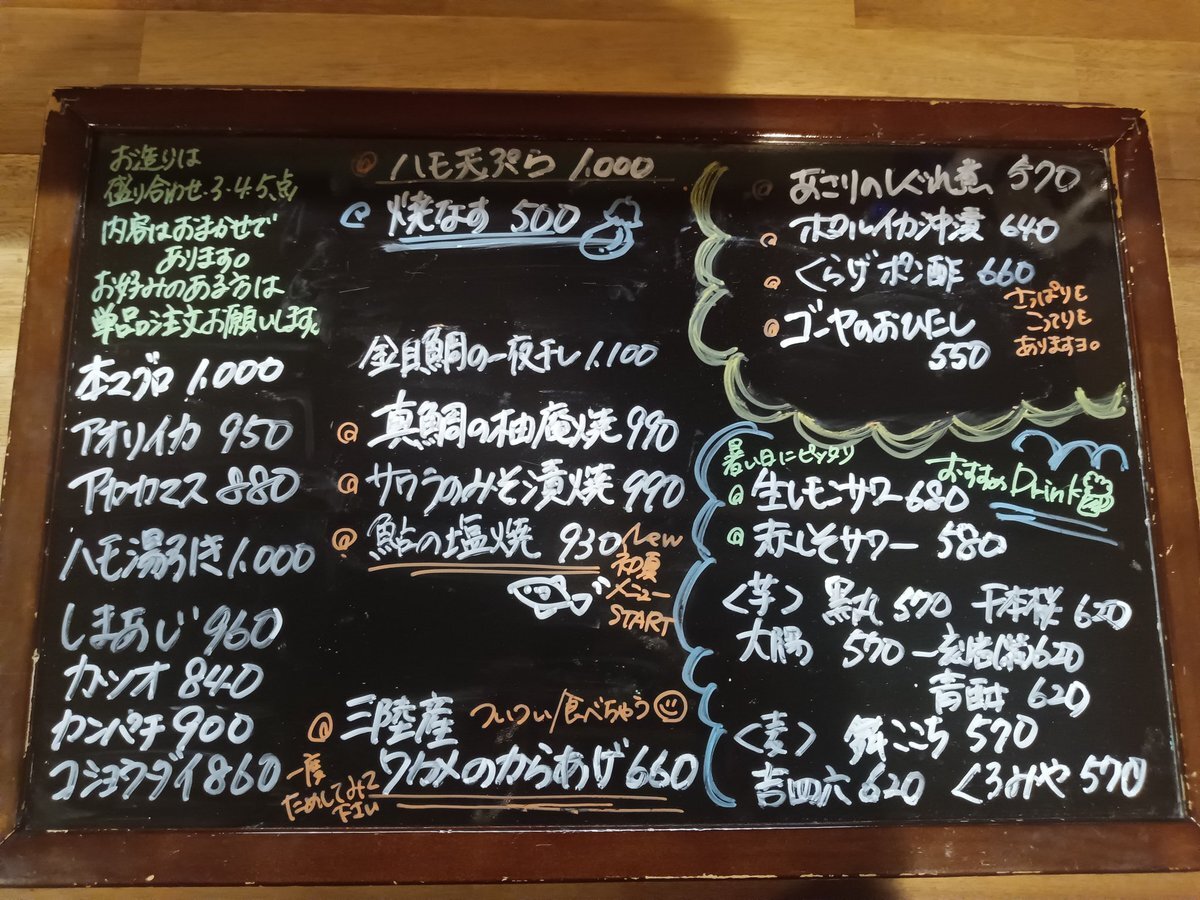 お造りは
盛り合わせ・3・4・5点
内容はおまかせで
あります。
お好みのある方は
単品の注文お願いします。
本マグロ 1.000
アオリイカ 950
アカカマス 880
ハモ湯引き 1.000
しまあじ 960
カツオ 840
カンパチ 900
コショウダイ 860
ハモ天ぷら 1.000
焼なす 500
金目鯛の一夜干し 1.100
真鯛の柚庵焼 990
サワラのみそ漬焼 990
鮎の塩焼 930
New
初夏
メニュー
START
三陸産 ついつい食べちゃう
ワカメのからあげ 660
一度
ためしてみて
下さい
あさりのしぐれ煮 570
ホタルイカ沖漬 640
くらげポン酢 660
ゴーヤのおひたし
550
さっぱりも
こってりも
ありますヨ。
暑い日にピッタリ
おすすめ Drink
生レモンサワー 680
赤しそサワー 580
<芋> 黒丸 570 千本桜 620
大隅 570 一刻者(紫) 620
青酎 620
<麦> 舞ここち 570
吉四六 620 くろみや 570